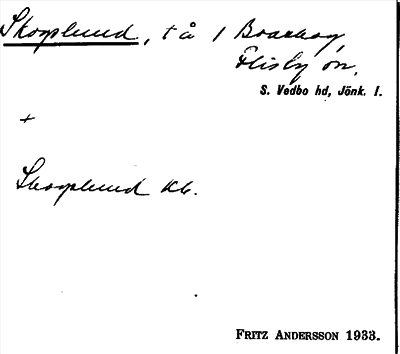 Skogslund, t å 1 Boarhog,
Flisby sn.
S. Vedbo hd, Jönk. l.
+
Skogslund Kb.
FRITZ ANDERSSON 1933.